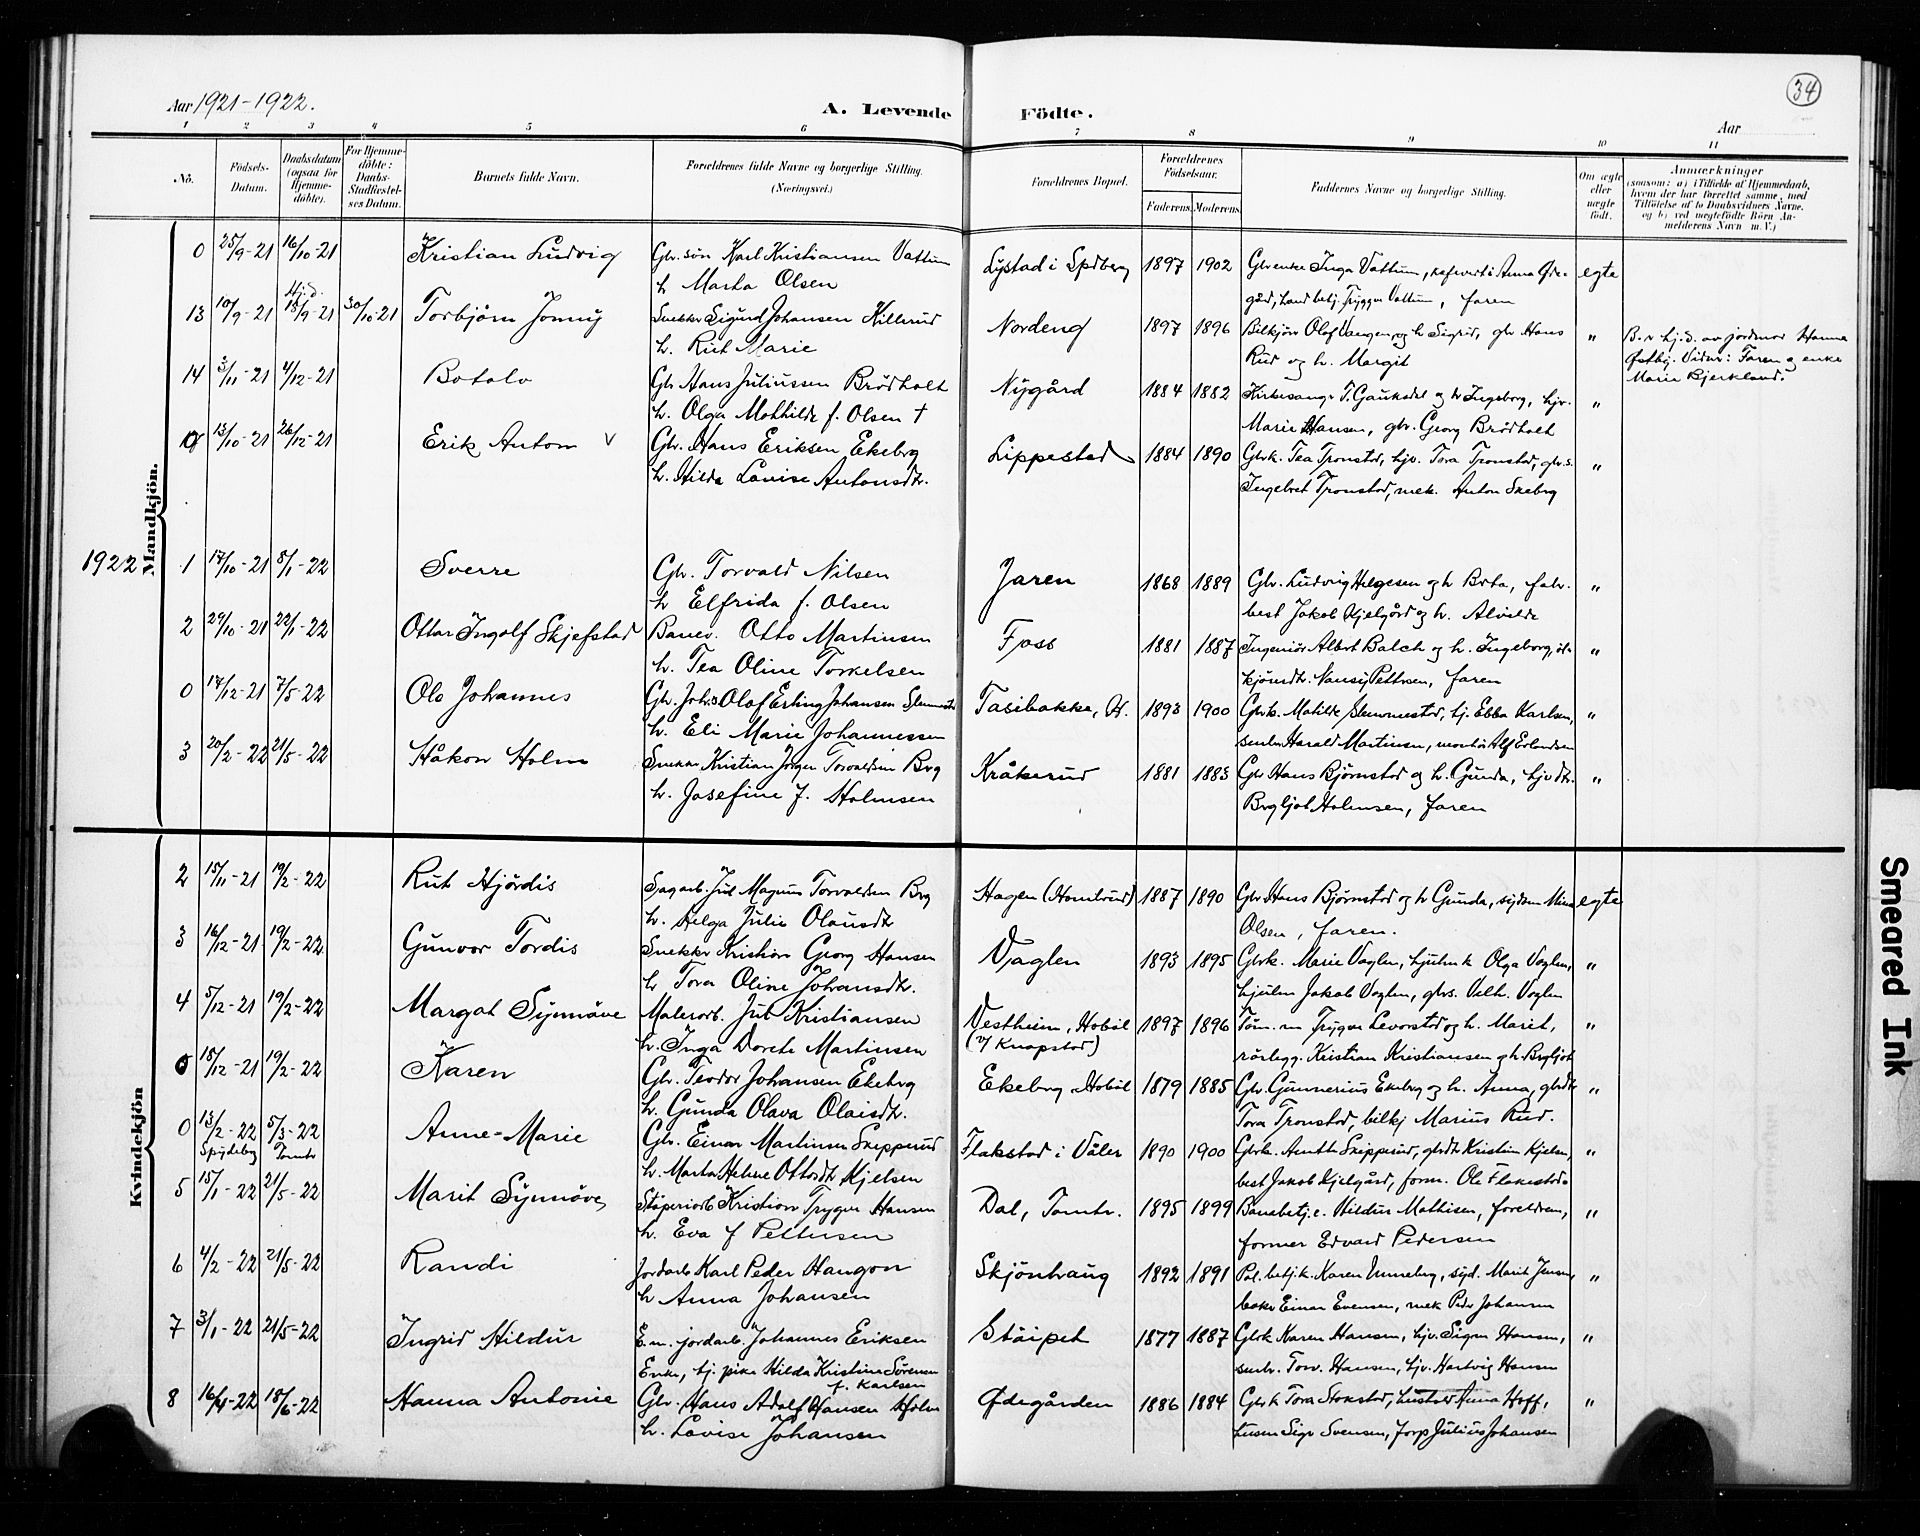 34
Aar 1921-1922.
A. Levende Födte.
Aar
1 2 3 4 5 6 7 8 9 10 11
Nô.
Födsels-Datum.
Daabsdatum (ogsaa for Hjemme-döbte).
For Hjemme-döbte: Daabs-Stadfæstel-ses Datum.
Barnets fulde Navn.
Forældrenes fulde Navne og borgerlige Stilling. (Næringsvei.)
Forældrenes Bopæl.
Forældrenes Födselsaar.
Faderens Moderens
Faddernes Navne og borgerlige Stilling.
Om ægte eller uægte födt.
Anmærkninger
(saasom: a) i Tilfælde af Hjemmedaab, hvem der har forrettet samme, med Tilföielse af to Daabsvidners Navne. og b) ved uægtefödte Börn An-melderens Navn m.V.)
Mandkjön.
0 25/9-21 16/10-21 Kristian Ludvig Gbr. sön Karl Kristiansen Vattum Lystad i Spdberg 1897 1902 Gbrenke Inga Vattum, Anna Øde- egte
h. Marta Olsen gård, landbetj. Trygve Vattum, faren
13 10/9-21 Hj.d. 15/9-21 30/10-21 Torbjörn Jonny Snekker Sigurd Johansen Killerud Nordeng 1897 1896 Bilkjörer Olaf Vangen og h. Sigrid, gbr Hans " B. er hj.d. av jordmor Hanna
h. Rut Marie Rud og h. Margit Østby. Vidner: Faren og enke
Marie Bjerkeland.
14 3/11-21 4/12-21 Botolv Gbr Hans Juliussen Brödholt Nygård 1884 1882 Kirkesanger T. Gauksdal og h Ingeborg, hjv. "
h. Olga Mathilde f. Olsen † Marie Hansen, gbr. Georg Brödholt
0 13/10-21 26/12-21 Erik Anton v Gbr. Hans Eriksen Ekebrg Lippestad 1884 1890 Gbrk. Tea Tronstad, hjv. Tora Tronstad, gbr.s. "
h. Hilda Lovise Antonsdtr. Ingebret Tronstad, mek. Anton Ekebrg
1922
1 17/10-21 8/1-22 Sverre Gbr. Torvald Nilsen Jaren 1868 1889 Gbr. Ludvig Helgesen og h Berta, fabr. "
h Elfrida f. Olsen best Jakob Kjelgård og h. Alvilde
2 29/10-21 22/1-22 Ottar Ingolf Skjefstad Banev. Otto Martinsen Foss 1881 1887 Ingeniör Albert Balch og h. Ingeborg, "
h. Tea Oline Torkelsen Nansy Pettersen, faren
0 14/12-21 7/5-22 Ole Johannes Gbr. Olaf Erling Johansen Tasibakke, 1893 1900 Gbrk. Matilde Slemmestad, hj. Ebba Karlsen, "
h. Eli Marie Johannessen Harald Martinsen, montör Alf Erlandsen
3 20/2-22 21/5-22 Håkon Holm Snekker Kristian Jörgen Torvaldsen Brg Kråkerud 1881 1883 Gbr Hans Bjørnstad og h. Gunda, hjv dtr. "
h. Josefine f. Holmsen Brgljot Holmsen, faren
Kvindekjön
2 15/11-21 19/2-22 Rut Hjördis Sagarb. Jul Magnus Torvaldsen Brg Hagen (Homlerud) 1887 1890 Gbr Hans Bjørnstad og h Gunda, sydam Mina egte
h. Helga Julie Olausdt. Olsen, faren.
3 16/12-21 19/2-22 Gunvor Tordis Snekker Kristian Georg Hansen Vaglen 1893 1895 Gbrk. Marie Vaglen, hjulm k Olga Vaglen, "
h. Tora Oline Johansdt. hjulm Jakob Vaglen, gbrs. Vilh. Vaglen
4 5/12-21 19/2-22 Margot Synnöve Malerarb. Jul Kristiansen Vestheim, Hobøl 1897 1896 Töm.m Trygve Levorstad og h. Marit, "
h. Inga Dorete Martinsen (v/ Knapstad) rörlegg. Kristian Kristiansen og h. Brgljot
0 18/12-21 19/2-22 Karen Gbr. Teodor Johansen Ekebrg Ekebrg Hobøl 1879 1885 Gbr. Gunnerius Ekebrg og h. Anna, gbrdtr "
h. Gunda Olava Olaisdtr. Tora Tronstad, bilkj Marius Rud.
0 13/2-22 Spydeberg 5/3-22 Tomter Anne-Marie Gbr. Einar Martinsen Skipperud Flakstad i Våler 1890 1900 Gbrk. Anette Skipperud, gbrdtr Kristine Kjelsen, "
h. Marta Helene Ottosdtr Kjelsen best Jakob Kjelgård, form. Ole Flakestad
5 15/1-22 21/5-22 Marit Synnöve Stöperiarb Kristian Trygve Hansen Dal, Tomter. 1895 1899 Banebetj.e. Hildur Mathisen, foreldrene, "
h. Eva f Pettersen former Edvard Pedersen
6 4/2-22 21/5-22 Randi Jordarb Karl Peder Haugen Skjönhaug 1892 1891 Pol. betj.k. Karen Unneberg, syd. Marit Jensen, "
h Anna Johansen baker Einar Evensen, mek Peder Johansen
7 3/1-22 21/5-22 Ingrid Hildur E.m. jordarb. Johannes Eriksen Stöipet 1877 1887 Gbrk Karen Hansen, hjv. Signe Hansen, "
Enke, tj. pike Hilda Kristine Sörensen f. Karlsen Torv. Hansen, hjv. Hartvig Hansen
8 16/4-22 18/6-22 Hanna Antonie Gbr. Hans Adolf Hansen Holm Ødegården 1886 1884 Gbrk Tora Stokstad, Anna Hoff, "
h. Lovise Johansen Svensen, Julius Johansen
Smeared Ink